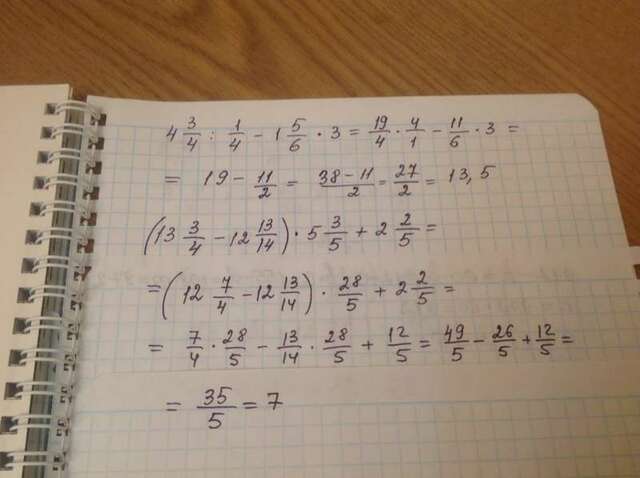 4 3/4 : 1/4 - 1 5/6 · 3 = 19/4 · 4/1 - 11/6 · 3 =
= 19 - 11/2 = 38-11/2 = 27/2 = 13,5
(13 3/4 - 12 13/14) · 5 3/5 + 2 2/5 =
= (12 7/4 - 12 13/14) · 28/5 + 2 2/5 =
= 7/4 · 28/5 - 13/14 · 28/5 + 12/5 = 49/5 - 26/5 + 12/5 =
= 35/5 = 7